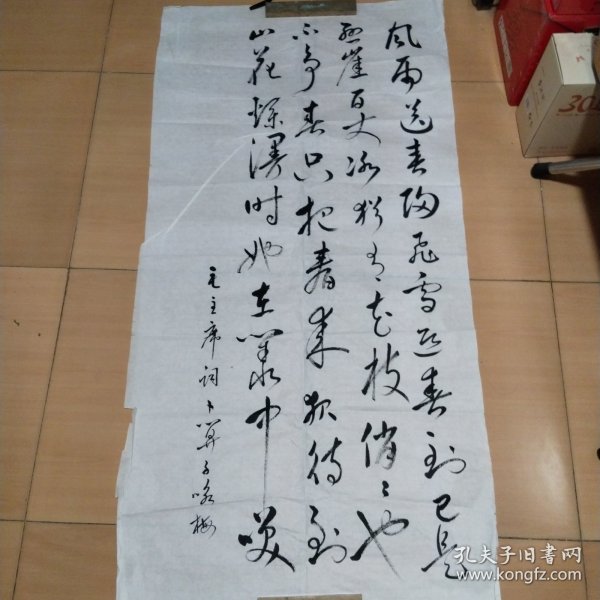 风雨送春归飞雪迎春到已是
悬崖百丈冰犹有花枝俏俏也
不争春只把春来报待到
山花烂漫时她在丛中笑
毛主席词卜算子咏梅
孔夫子旧书网
www.kongfz.com